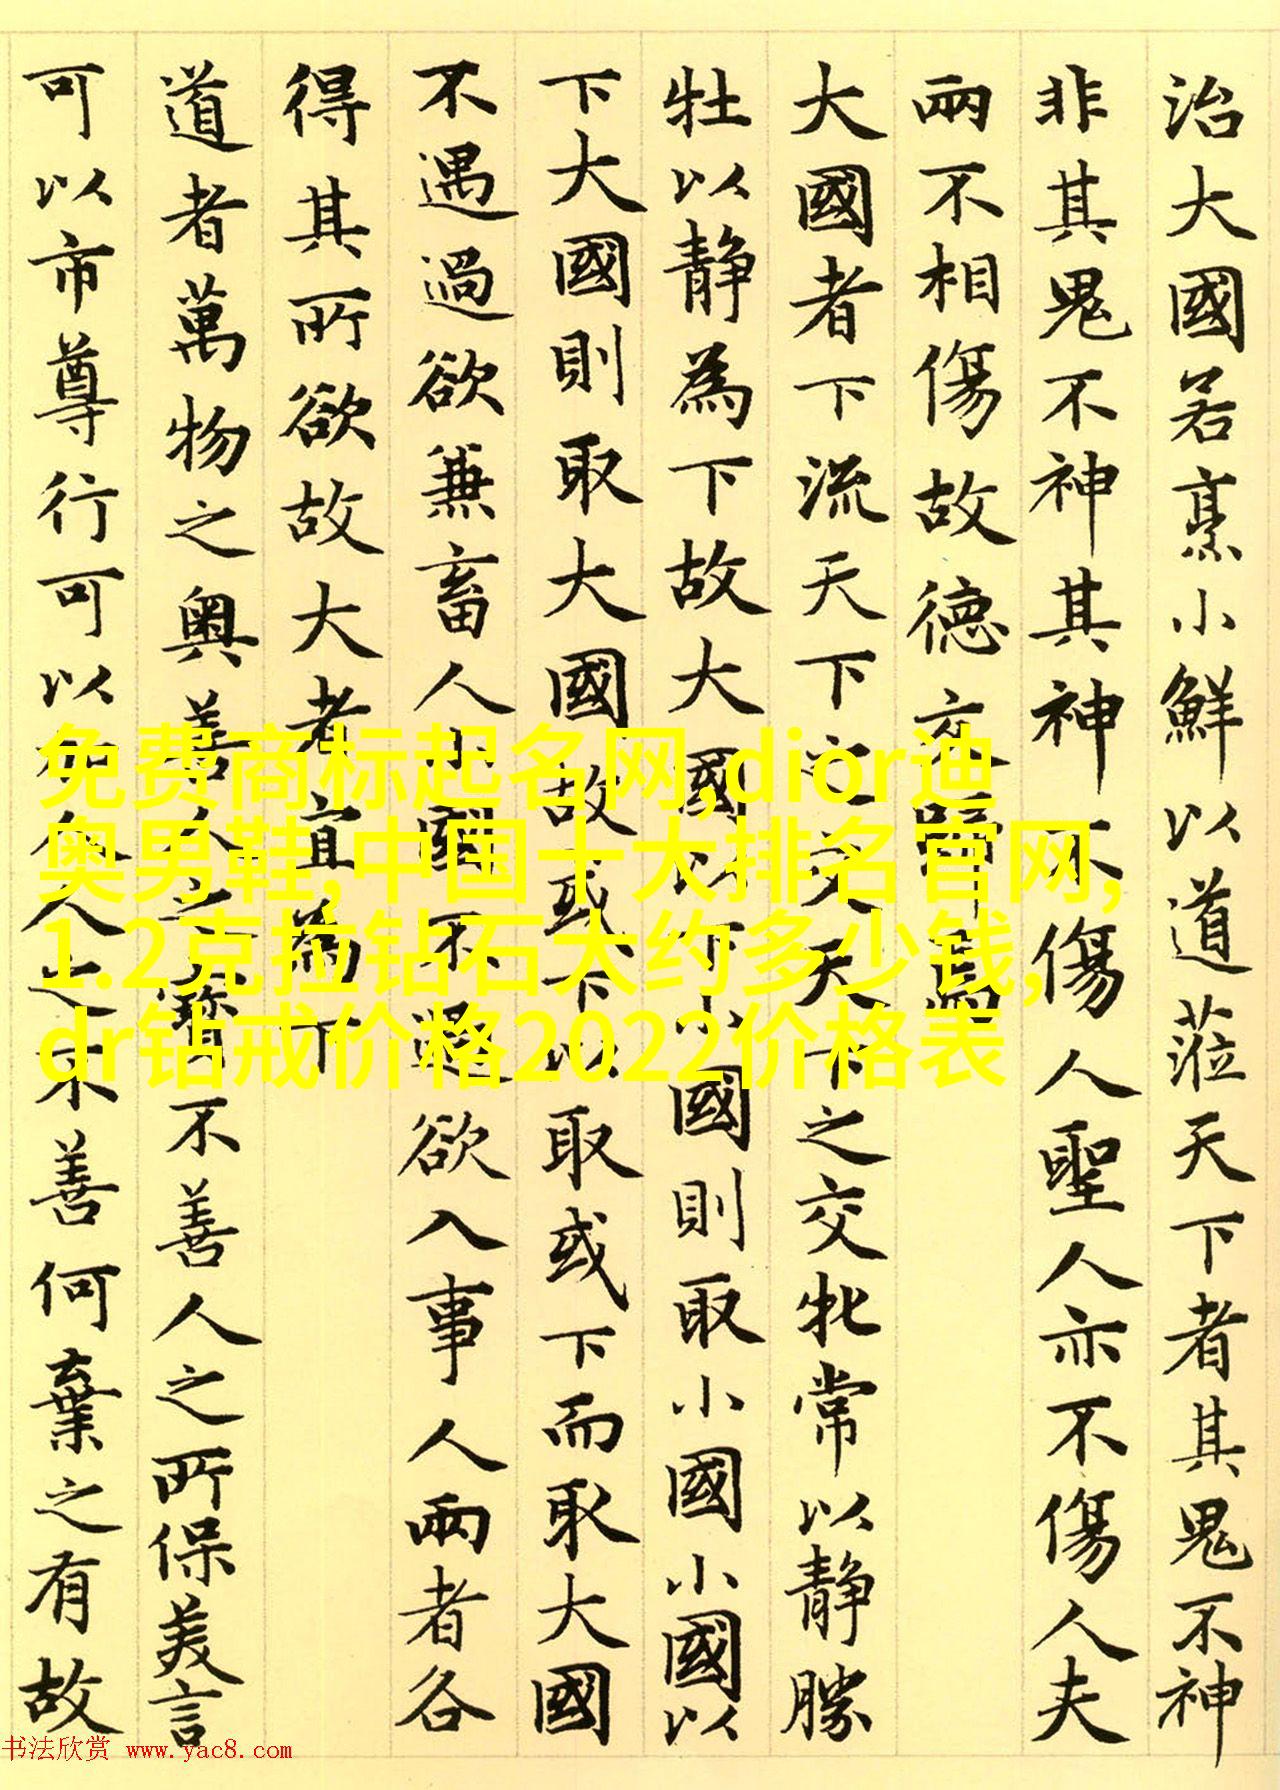 治大國若烹小鮮以道蒞天下者其鬼不神
非其鬼不神其神不傷人聖人亦不傷人夫
兩不相傷故德交歸焉
大國者下流天下之交天下之交牝常以静勝
牡以静為下故大國以下小國則取小國小國以
下大國則取大國故或下以取或下而取大國
不遇過欲兼畜人小國不過欲入事人兩者各
得其所欲故大者宜為下
道者萬物之奧善人之寶不善人之所保美言
可以市尊行可以加人人之不善何棄之有故
免费商标起名网,dior迪
奥男鞋,中国十大排名官网,
1.2克拉钻石大约多少钱,
dr钻戒价格2022价格表
书法欣赏 www.yac8.com